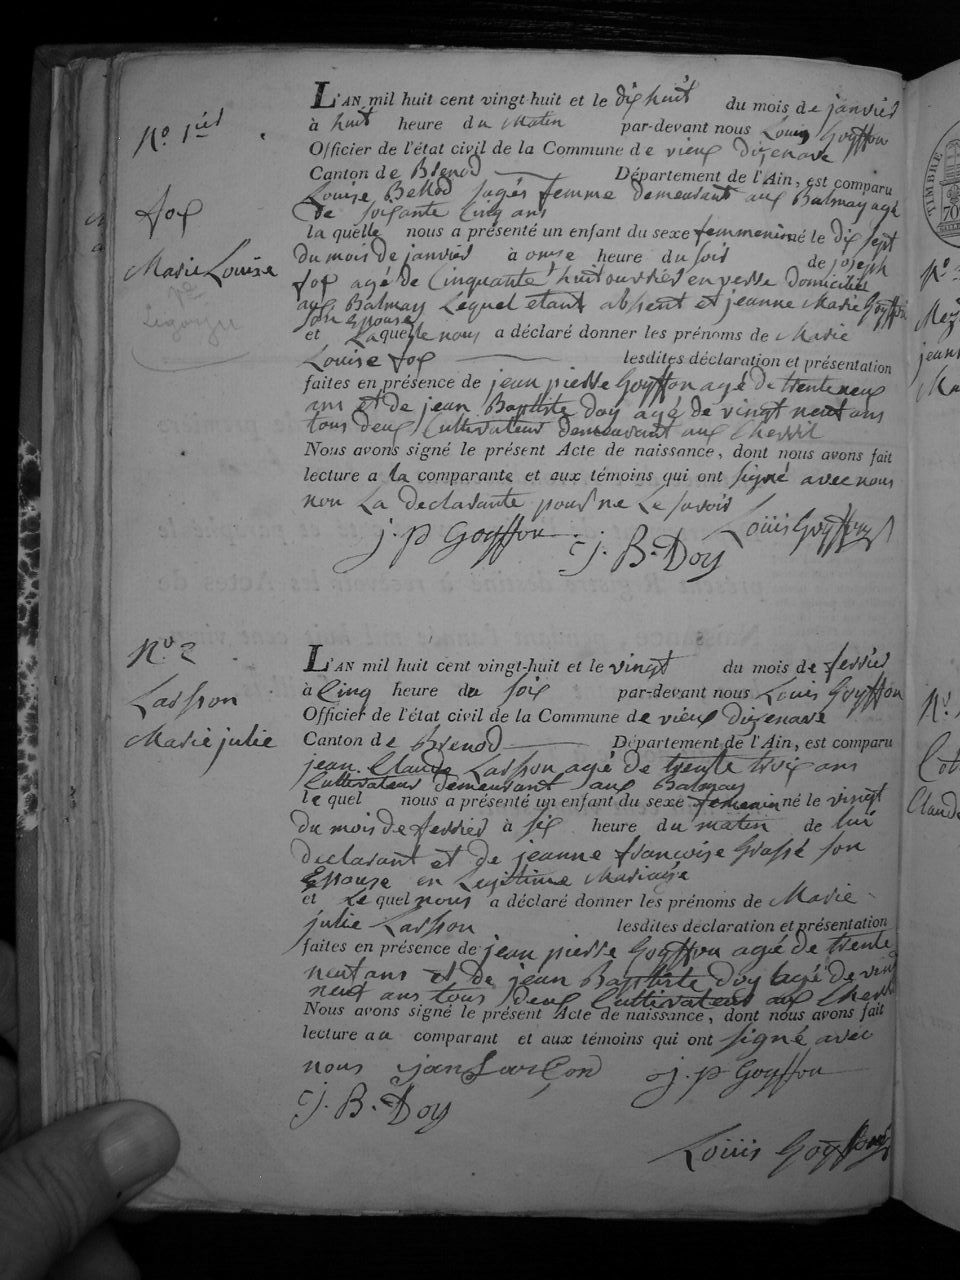 No. 1ier
fox
Marie Louise
L'AN mil huit cent vingt-huit et le dix huit du mois de janvier
à huit heure du Matin par-devant nous Louis Goyffon
Officier de l'état civil de la Commune de vieux dizenave
Canton de Brenod Département de l'Ain, est comparu
Louise Bellod sages femme demeurant aux Balmay agé
de soixante Cinq ans
la quelle nous a présenté un enfant du sexe femmenin né le dix sept
du mois de janvier à onse heure du soir de joseph
fox agé de Cinquante huit ouvrier en verre domicilié
aux Balmay Lequel etant absent et jeanne Marie Goyffon
son Epouse
et Laquelle nous a déclaré donner les prénoms de Marie
Louise fox lesdites déclaration et présentation
faites en présence de jean pierre Goyffon agé de trente neuf
ans et de jean Baptiste Doy agé de vingt neuf ans
tous deux Cultivateur demeurant aux Chevril
Nous avons signé le présent Acte de naissance, dont nous avons fait
lecture a la comparante et aux témoins qui ont signé avec nous
non La declarante pour ne Le savoir
j. p Goyffon
J. B. Doy
Louis Goyffon
No 2
Lasson
Marie julie
L'AN mil huit cent vingt-huit et le vingt du mois de fevrier
à Cinq heure du soir par-devant nous Louis Goyffon
Officier de l'état civil de la Commune de vieux dizenave
Canton de Brenod Département de l'Ain, est comparu
jean Claude Lasson agé de trente trois ans
Cultivateur demeurant aux Balmay
le quel nous a présenté un enfant du sexe femenin né le vingt
du mois de fevrier à six heure du matin de lui
declarant et de jeanne francoise Grassé son
Epouse en Legitime Mariage
et Le quel nous a déclaré donner les prénoms de Marie
julie Lasson lesdites déclaration et présentation
faites en présence de jean pierre Goyffon agé de trente
neuf ans et de jean Baptiste Doy agé de vingt
neuf ans tous deux Cultivateur aux Chevril
Nous avons signé le présent Acte de naissance, dont nous avons fait
lecture au comparant et aux témoins qui ont signé avec
nous
J. p Goyffon
J. B. Doy
Louis Goyffon
TIMBRE
70